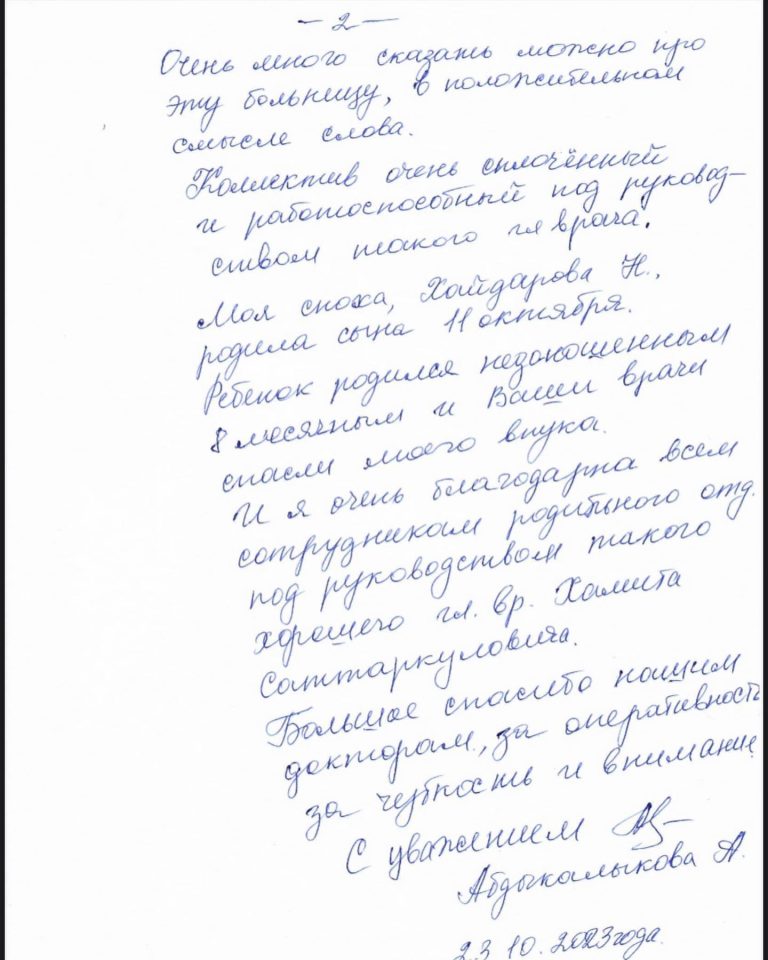 — 2 —
Очень много сказать можно про
эту больницу, в положительном
смысле слова.
Коллектив очень сплочённый
и работоспособный под руковод-
ством такого гл врача.
Моя сноха, Хайдарова Н.,
родила сына 11 октября.
Ребенок родился недоношенным
8 месячным и Ваши врачи
спасли моего внука.
И я очень благодарна всем
сотрудникам родильного отд.
под руководством такого
хорошего гл. вр. Хамита
Саттаркуловича.
Большое спасибо нашим
докторам, за оперативность
за чуткость и внимание
С уважением
Абдыкалыкова А.
23.10.2023 года.